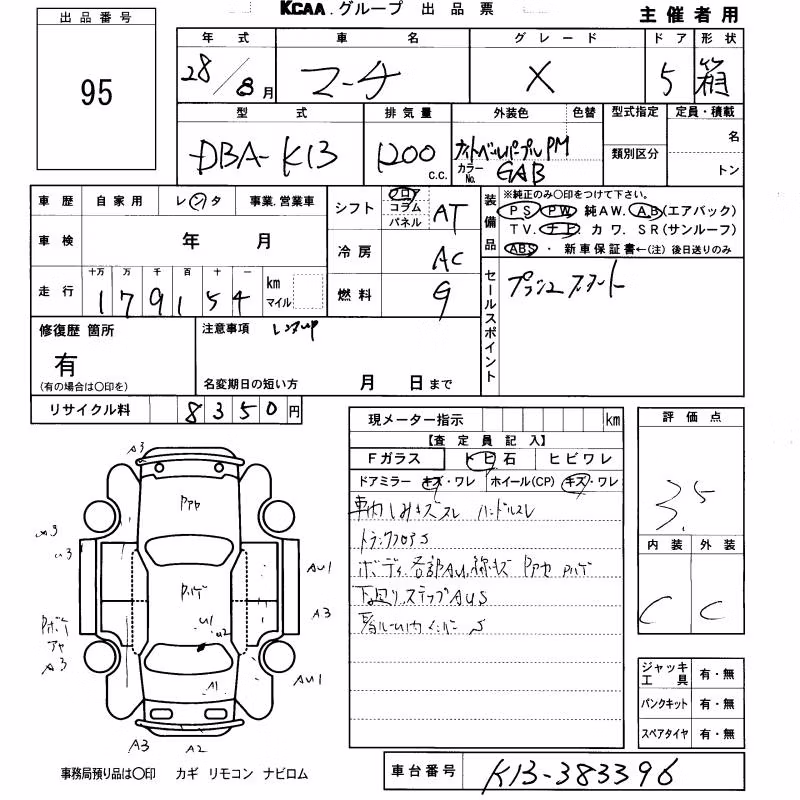 KCAA.グループ 出品票
主催者用
出品番号
95
年式 車名 グレード ドア 形状
28/8月 マーチ X 5 箱
型式 排気量 外装色 色替 型式指定 定員・積載
DBA-K13 1200 c.c. ナイトベールパープルPM
カラーNo. GAB
類別区分 名
トン
車歴 自家用 レンタ 事業.営業車
車検 年 月
走行 十万 万 千 百 十 一
179154 km マイル
シフト フロア コラム パネル AT
冷房 AC
燃料 G
装備品
※純正のみ〇印をつけて下さい。
PS PW 純AW. AB(エアバック)
TV. ナビ カワ. SR(サンルーフ)
ABS・新車保証書←(注)後日送りのみ
セールスポイント
プッシュスタート
修復歴 箇所
有
(有の場合は〇印を)
注意事項 レンタup
名変期日の短い方 月 日まで
リサイクル料 8350円
現メーター指示 km
【査定員記入】
Fガラス トビ石 ヒビワレ
ドアミラー キズ・ワレ ホイール(CP) キズ・ワレ
車内シミキズスレ ハンドルスレ
トランクフロアS
ボディ各部AU.線キズ
下廻り.ステップAUS
評価点
3.5
内装 外装
C C
ジャッキ工具 有・無
パンクキット 有・無
スペアタイヤ 有・無
A3
A3
AU1
A3
U1
U2
A3
A1
AU1
A3 A2
事務局預り品は〇印 カギ リモコン ナビロム
車台番号 K13-383396